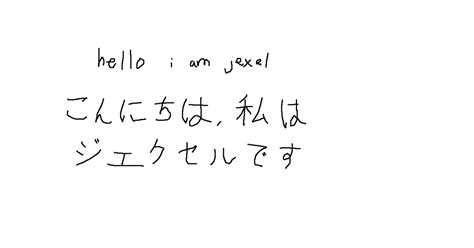 hello i am jexel
こんにちは, 私は
ジェクセルです